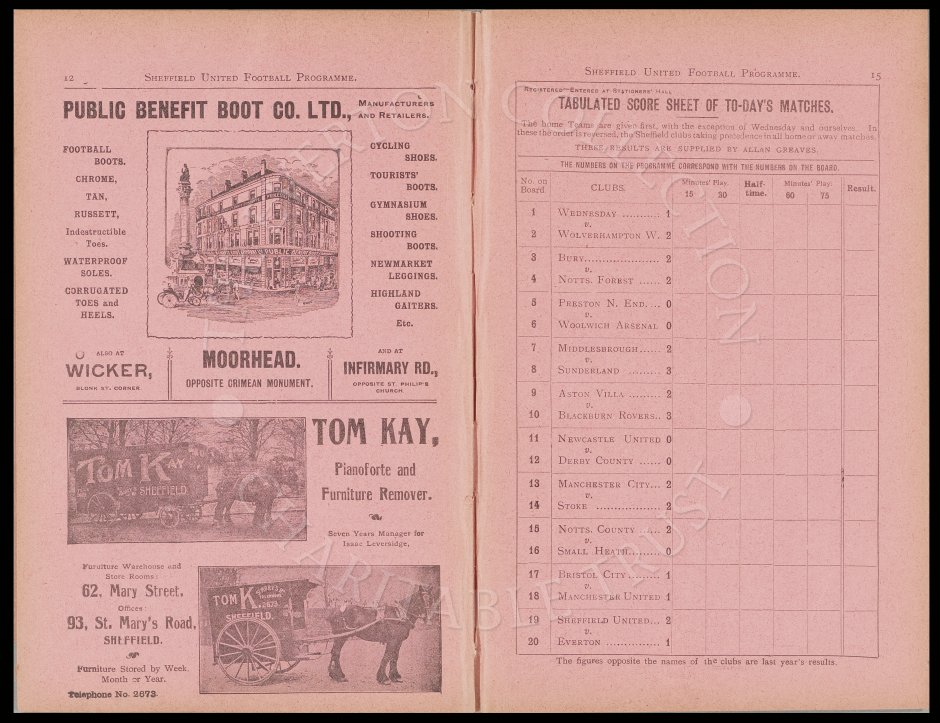 12 SHEFFIELD UNITED FOOTBALL PROGRAMME.
PUBLIC BENEFIT BOOT CO. LTD., MANUFACTURERS
AND RETAILERS.
FOOTBALL
BOOTS.
CHROME,
TAN,
RUSSETT,
Indestructible
Toes.
WATERPROOF
SOLES.
CORRUGATED
TOES and
HEELS.
CYCLING
SHOES.
TOURISTS'
BOOTS.
GYMNASIUM
SHOES.
SHOOTING
BOOTS.
NEWMARKET
LEGGINGS.
HIGHLAND
GAITERS.
Etc.
ALSO AT
WICKER,
BLONK ST. CORNER.
MOORHEAD.
OPPOSITE CRIMEAN MONUMENT.
AND AT
INFIRMARY RD.,
OPPOSITE ST. PHILIP'S
CHURCH.
TOM KAY
SHEFFIELD
TOM KAY,
Pianoforte and
Furniture Remover.
Seven Years Manager for
Isaac Leversidge,
Furniture Warehouse and
Store Rooms:
62, Mary Street.
Offices:
93, St. Mary's Road,
SHEFFIELD.
Furniture Stored by Week,
Month or Year.
Telephone No. 2673.
TOM K
SHEFFIELD.
SHEFFIELD UNITED FOOTBALL PROGRAMME. 15
REGISTERED—ENTERED AT STATIONERS' HALL
TABULATED SCORE SHEET OF TO-DAY'S MATCHES.
The home Teams are given first, with the exception of Wednesday and ourselves. In
these the order is reversed, the Sheffield clubs taking precedence in all home or away matches.
THESE RESULTS ARE SUPPLIED BY ALLAN GREAVES.
THE NUMBERS ON THE PROGRAMME CORRESPOND WITH THE NUMBERS ON THE BOARD.
No. on Board CLUBS. Minutes' Play. 15 30 Half-time. Minutes' Play. 60 75 Result.
1 WEDNESDAY ........... 1
v.
2 WOLVERHAMPTON W. 2
3 BURY..................... 2
v.
4 NOTTS. FOREST ...... 2
5 PRESTON N. END.... 0
v.
6 WOOLWICH ARSENAL 0
7 MIDDLESBROUGH...... 2
v.
8 SUNDERLAND ......... 3
9 ASTON VILLA .......... 2
v.
10 BLACKBURN ROVERS.. 3
11 NEWCASTLE UNITED 0
v.
12 DERBY COUNTY ...... 0
13 MANCHESTER CITY... 2
v.
14 STOKE .................. 2
15 NOTTS. COUNTY ...... 2
v.
16 SMALL HEATH......... 0
17 BRISTOL CITY......... 1
v.
18 MANCHESTER UNITED 1
19 SHEFFIELD UNITED... 2
v.
20 EVERTON ............... 1
The figures opposite the names of the clubs are last year's results.
CHARITABLE TRUST